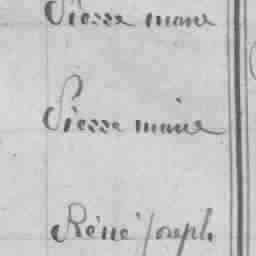 Pierre marie
Pierre marie
Réné Joseph